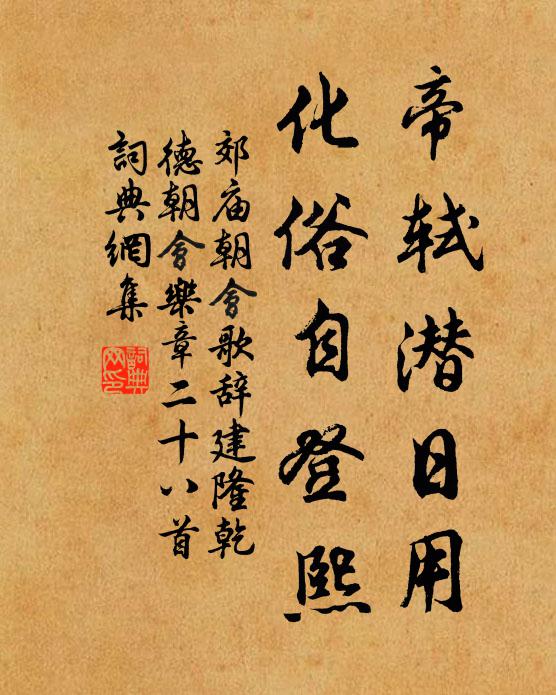 帝轼潜日用
化俗自登熙
郊庙朝会歌辞建隆乾
德朝会樂章二十八首
詞典網集
詞典网印